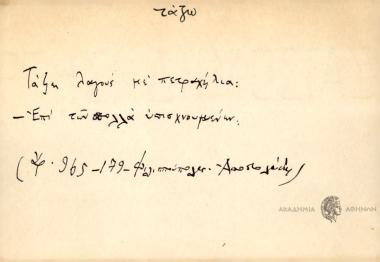 τάζω
Τάζει λαγούς μέ πετραχήλια:
– Ἐπί τῶν πολλά ὑπισχνουμένων:
(ἀρ. 965 – 179 – Φιλιππούπολιν. Ἀποστολίδης)
ΑΚΑΔΗΜΙΑ ΑΘΗΝΩΝ